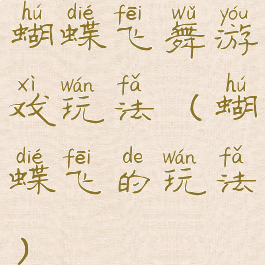 hú dié fēi wǔ yóu
蝴蝶飞舞游
xì wán fǎ hú
戏玩法(蝴
dié fēi de wán fǎ
蝶飞的玩法
)